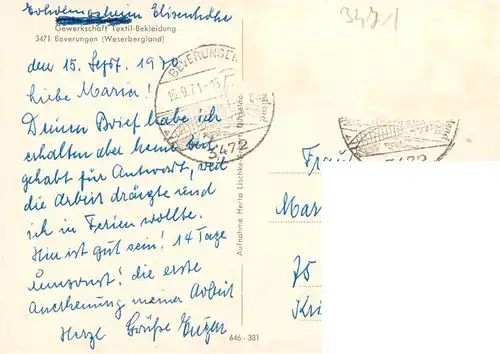 Erholungsheim Elisenhöhe
Gewerkschaft Textil-Bekleidung
3471 Beverungen (Weserbergland)
3471
den 15. Sept. 1970
Liebe Maria!
Deinen Brief habe ich
erhalten aber keine Zeit
gehabt für Antwort, weil
die Arbeit drängte und
ich in Ferien wollte.
Hier ist gut sein! 14 Tage
umsonst! die erste
Anerkennung meiner Arbeit
Herzl. Grüße Eugen
BEVERUNGEN
15.9.71-15
3472
3472
Aufnahme Herta Lischke
646 - 381
Frau
Mar
75
K